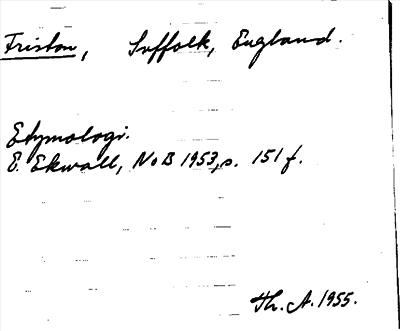 Friston, Suffolk, England.
Etymologi.
E. Ekwall, NoB 1953, s. 151 f.
Th. A. 1955.